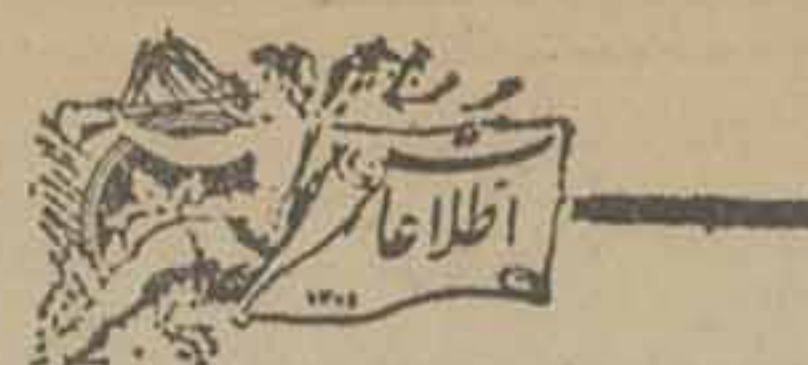 اطلاعات
۱۳۰۵